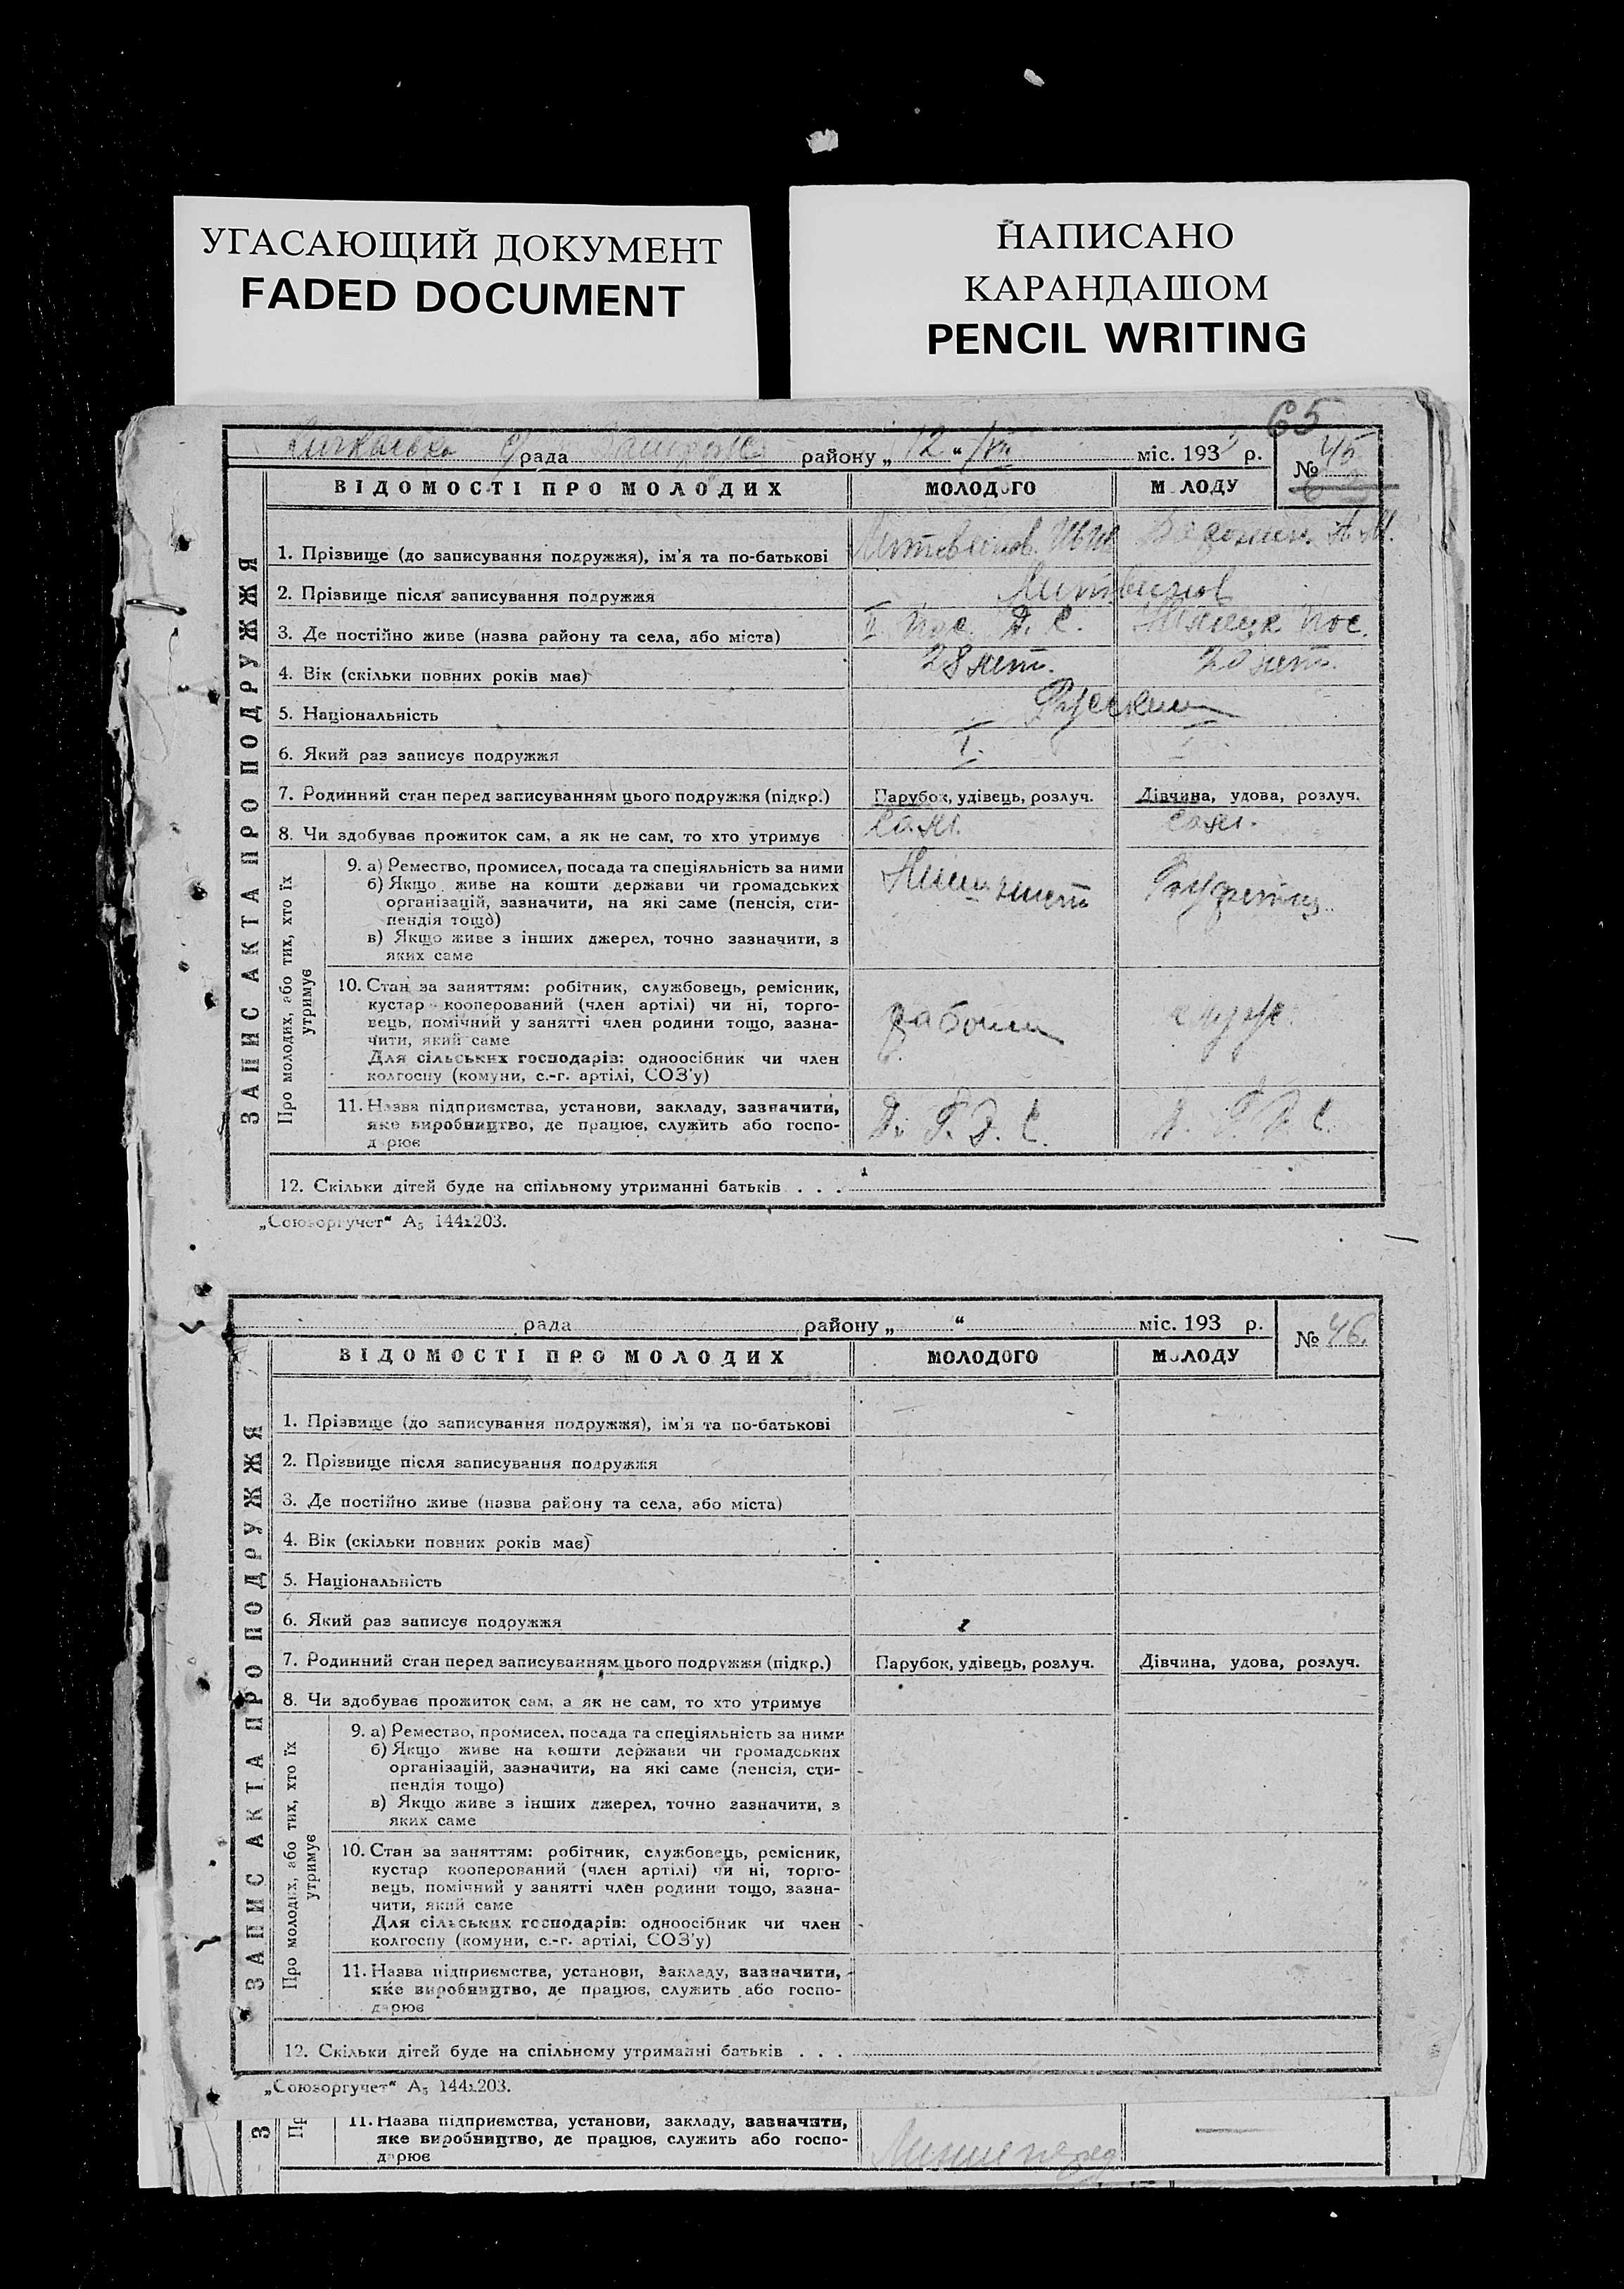 УГАСАЮЩИЙ ДОКУМЕНТ
FADED DOCUMENT
НАПИСАНО
КАРАНДАШОМ
PENCIL WRITING
65
рада району „ 12 “ міс. 193 р.
№ 45
ВІДОМОСТІ ПРО МОЛОДИХ МОЛОДОГО МОЛОДУ
ЗАПИС АКТА ПРО ПОДРУЖЖЯ
1. Прізвище (до записування подружжя), ім’я та по-батькові Литвинов А. М.
2. Прізвище після записування подружжя Литвинов
3. Де постійно живе (назва району та села, або міста) II пос. Д. С. пос.
4. Вік (скільки повних років має) 28 лет. 20 лет.
5. Національність Русские
6. Який раз записує подружжя I. I
7. Родинний стан перед записуванням цього подружжя (підкр.) Парубок, удівець, розлуч. Дівчина, удова, розлуч.
8. Чи здобуває прожиток сам, а як не сам, то хто утримує сам. сам.
Про молодих, або тих, хто їх
утримує
9. а) Ремество, промисел, посада та спеціяльність за ними
б) Якщо живе на кошти держави чи громадських
організацій, зазначити, на які саме (пенсія, сти-
пендія тощо)
в) Якщо живе з інших джерел, точно зазначити, з
яких саме
10. Стан за заняттям: робітник, службовець, ремісник,
кустар кооперований (член артілі) чи ні, торго-
вець, помічний у занятті член родини тощо, зазна-
чити, який саме рабочий служ.
Для сільських господарів: одноосібник чи член
колгоспу (комуни, с.-г. артілі, СОЗ’у)
11. Назва підприємства, установи, закладу, зазначити,
яке виробництво, де працює, служить або госпо- Д. Г. Э. С. Д. Г. Э. С.
дарює
12. Скільки дітей буде на спільному утриманні батьків . . .
„Союзоргучет“ А₅ 144х203.
рада району „ “ міс. 193 р.
№ 46.
ВІДОМОСТІ ПРО МОЛОДИХ МОЛОДОГО МОЛОДУ
ЗАПИС АКТА ПРО ПОДРУЖЖЯ
1. Прізвище (до записування подружжя), ім’я та по-батькові
2. Прізвище після записування подружжя
3. Де постійно живе (назва району та села, або міста)
4. Вік (скільки повних років має)
5. Національність
6. Який раз записує подружжя
7. Родинний стан перед записуванням цього подружжя (підкр.) Парубок, удівець, розлуч. Дівчина, удова, розлуч.
8. Чи здобуває прожиток сам, а як не сам, то хто утримує
Про молодих, або тих, хто їх
утримує
9. а) Ремество, промисел, посада та спеціяльність за ними
б) Якщо живе на кошти держави чи громадських
організацій, зазначити, на які саме (пенсія, сти-
пендія тощо)
в) Якщо живе з інших джерел, точно зазначити, з
яких саме
10. Стан за заняттям: робітник, службовець, ремісник,
кустар кооперований (член артілі) чи ні, торго-
вець, помічний у занятті член родини тощо, зазна-
чити, який саме
Для сільських господарів: одноосібник чи член
колгоспу (комуни, с.-г. артілі, СОЗ’у)
11. Назва підприємства, установи, закладу, зазначити,
яке виробництво, де працює, служить або госпо-
дарює
12. Скільки дітей буде на спільному утриманні батьків . . .
„Союзоргучет“ А₅ 144х203.
З
Пр
11. Назва підприємства, установи, закладу, зазначити,
яке виробництво, де працює, служить або госпо-
дарює